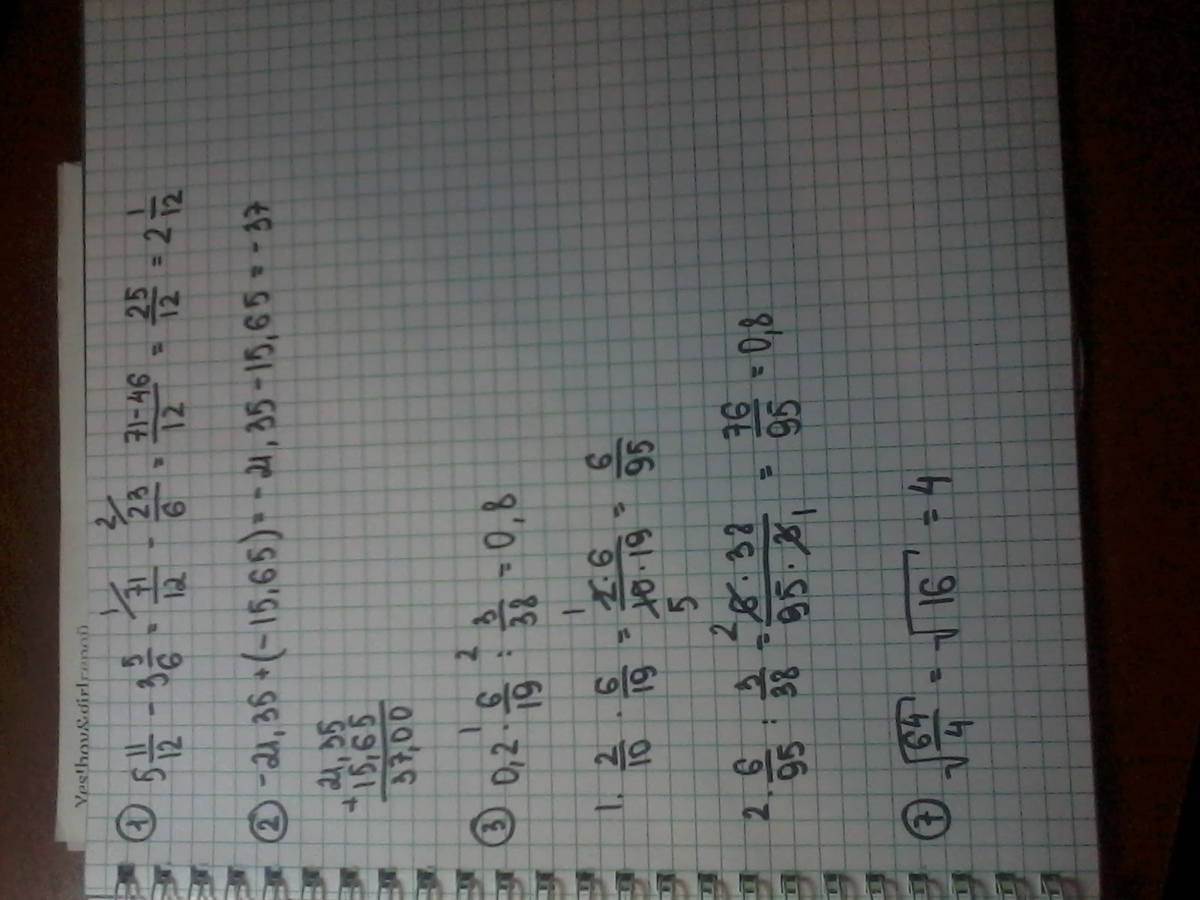 Yes!boy&girl
① 5 11/12 - 3 5/6 = 71/12 ¹/ - 23/6 ²/ = 71-46/12 = 25/12 = 2 1/12
② -21,35+(-15,65)=-21,35-15,65=-37
21,35
+15,65
37,00
1 2
③ 0,2 · 6/19 : 3/38 = 0,8
1. 2/10 · 6/19 = ¹2·6/10·19 5 = 6/95
2. 6/95 : 3/38 = ²6·38/95·3 1 = 76/95 = 0,8
⑦ √64/4 = √16 = 4